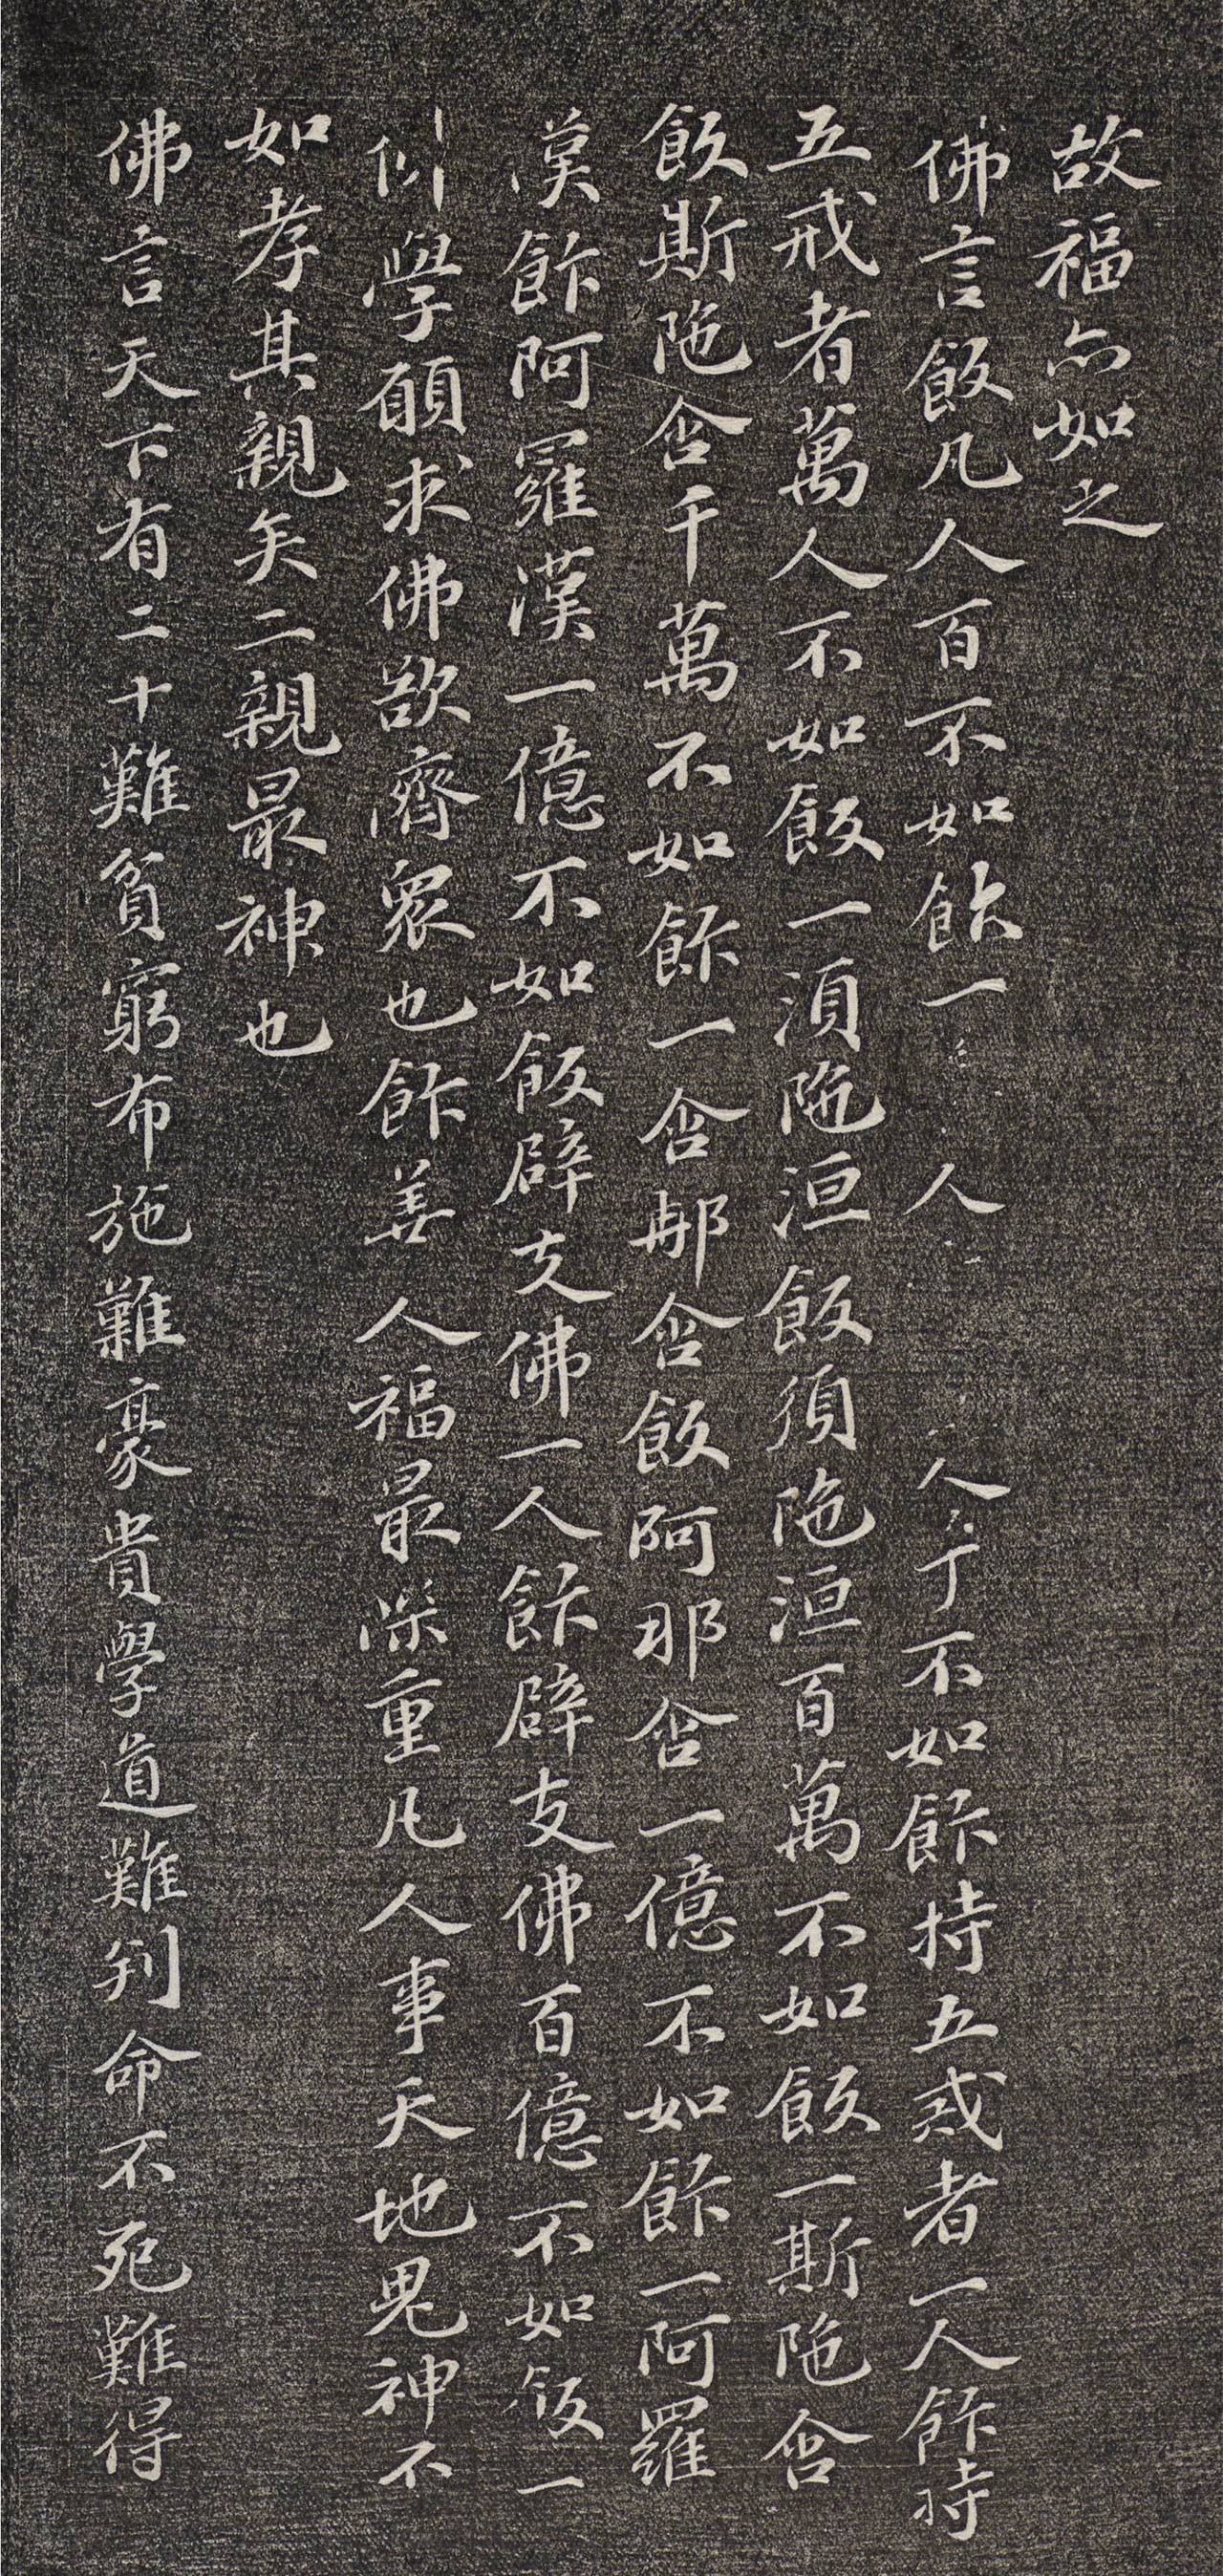 故福亦如之
佛言飯凡人百不如飯一人人千不如飯持五戒者一人飯持
五戒者萬人不如飯一須陁洹飯須陁洹百萬不如飯一斯陁含
飯斯陁含千萬不如飯一含那含飯阿那含一億不如飯一阿羅
漢飯阿羅漢一億不如飯辟支佛一人飯辟支佛百億不如飯一
佛學願求佛欲濟衆也飯善人福最深重凡人事天地鬼神不
如孝其親矣二親最神也
佛言天下有二十難貧窮布施難豪貴學道難判命不死難得